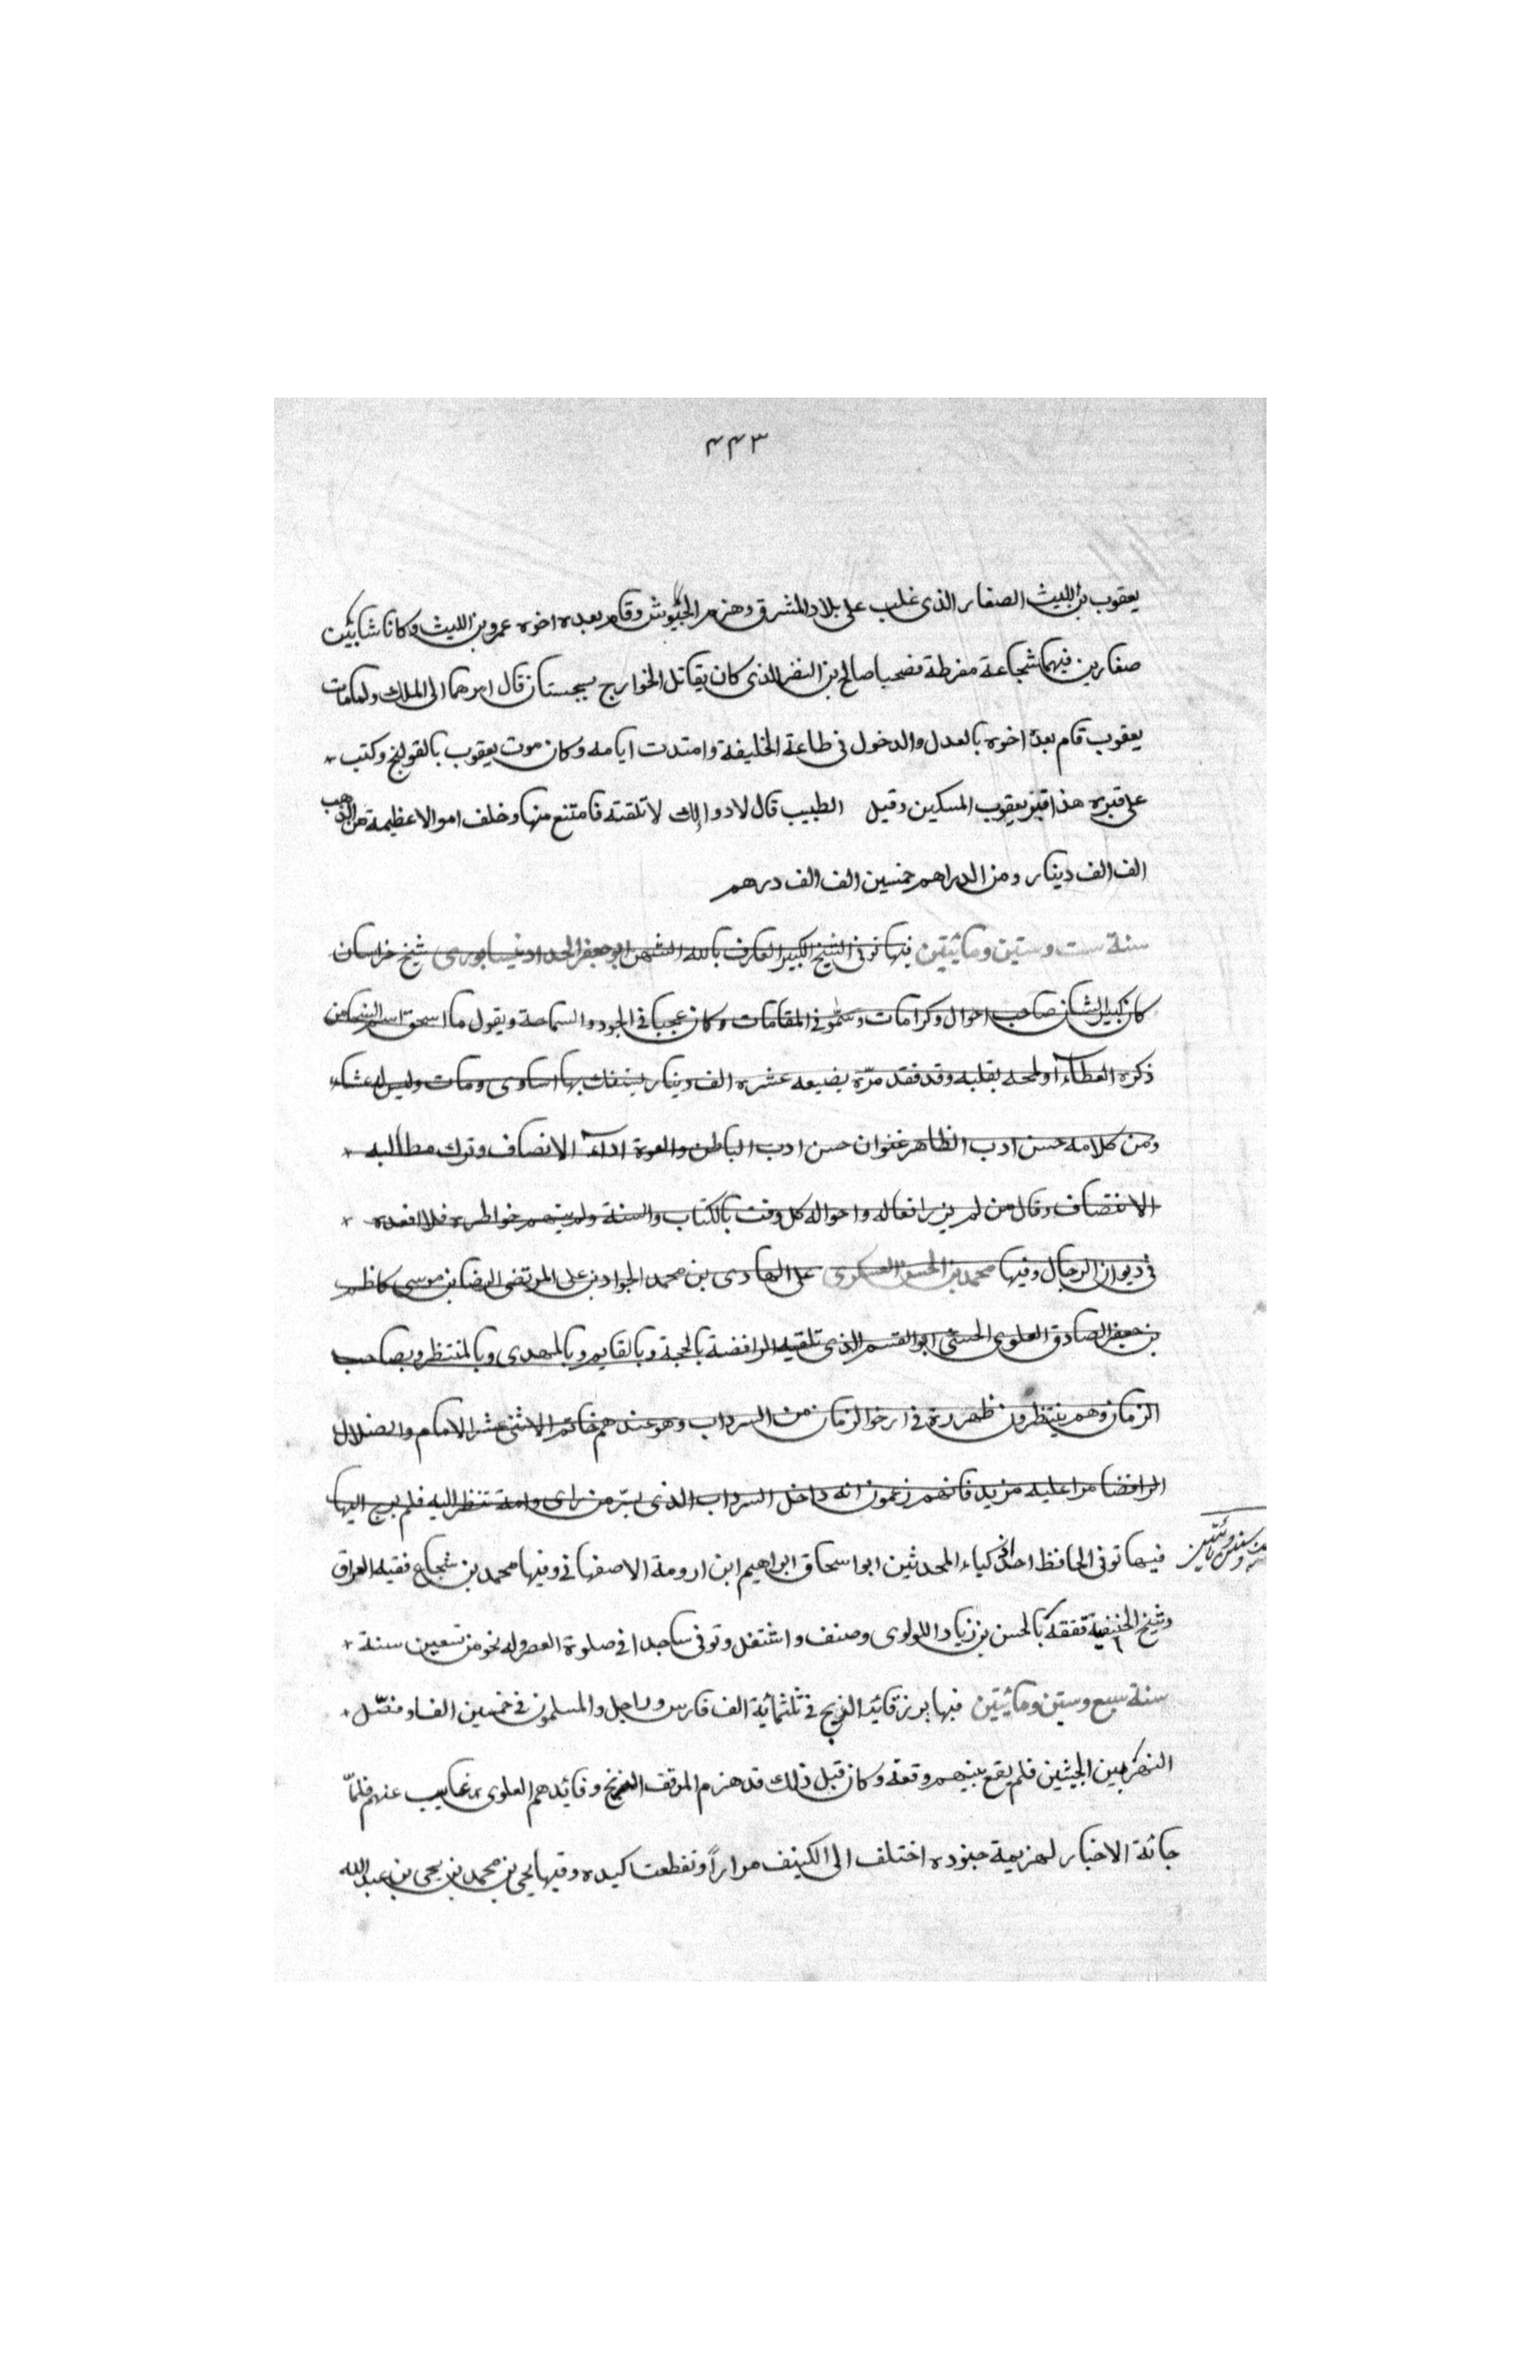 ٤٤٣
يعقوب بن الليث الصفار الذى غلب على بلاد المشرق وهزم الجيوش وقام بعده اخوه عمرو بن الليث وكانا شابين
صفارين فيهما شجاعة مفرطة فصحبا صالح بن النضر الذى كان يقاتل الخوارج بسجستان قال امرهما الى الملك ولما مات
يعقوب قام بعدة اخوه بالعدل والدخول فى طاعة الخليفة وامتدت ايامه وكان موت يعقوب بالقولنج وكتب
على قبره هذا قبر يعقوب المسكين وقيل الطبيب قال لا دوا لك لا تلقنة فامتنع منها وخلف اموالا عظيمة من الذهب
الف الف دينار ومن الدراهم خمسين الف الف درهم
سنة ست وستين ومائيتين فيها توفى الشيخ الكبير العارف بالله الشهير ابو جعفر الحداد نيسابورى شيخ خراسان
كان كبير الشان صاحب احوال وكرامات وسمو فى المقامات وكان عجبا فى الجود والسماحة ويقول ما اسحق اسم السخا من
ذكره العطاء او لمحه بقلبه وقد فقد مرّة بضيعه عشره الف دينار يستفك بها اساوى ومات وليس له عشاء
ومن كلامه حسن ادب الظاهر عنوان حسن ادب الباطن والفوة اداء الانصاف وترك مطالبه
الانتصاف وقال من لم يزن افعاله واحواله كل وقت بالكتاب والسنة ولم يتهم خواطره فلا تعده
فى ديوان الرجال وفيها محمد بن الحسن العسكرى على الهادى بن محمد الجواد بن على المرتضى الرضا بن موسى كاظم
بن جعفر الصادق العلوى الحسنى ابو القسم الذى تلقبه الرافضة بالحجة وبالقايم وبالمهدى وبالمنتظر وبصاحب
الزمان وهم ينتظرون ظهوره فى اخر الزمان من السرداب وهو عندهم خاتم الاثنى عشر الامام والضلال
الرافضا مرا عليه مزيد فانهم زعمون انه داخل السرداب الذى بسرّ من راى وامه تنظر اليه فلم يرج اليها
فيها توفى الحافظ احد اذكياء المحدثين ابوا سحاق ابراهيم ابن ارومة الاصفهانى وفيها محمد بن شجاع فقيه العراق
وشيخ الحنيفية تفقه بالحسن بن زياد اللولوى وصنف واشتغل وتوفى ساجدا فى صلوة العصر وله نحو من تسعين سنة
سنة سبع وستين ومائيتين فيها برز قائد الزنج فى ثلثمائية الف فارس وراجل والمسلمون فى خمسين الفا وفصّل
النهر بين الجيشين فلم يقع بينهم وقعة وكان قبل ذلك قد هزم الموفق الزنج وقائدهم العلوى غايب عنهم فلمّا
جائة الاخبار لهزيمة جنوده اختلف الى الكنيف مراراً وتقطعت كبده وفيها يحيى بن محمد بن يحيى بن عبد الله